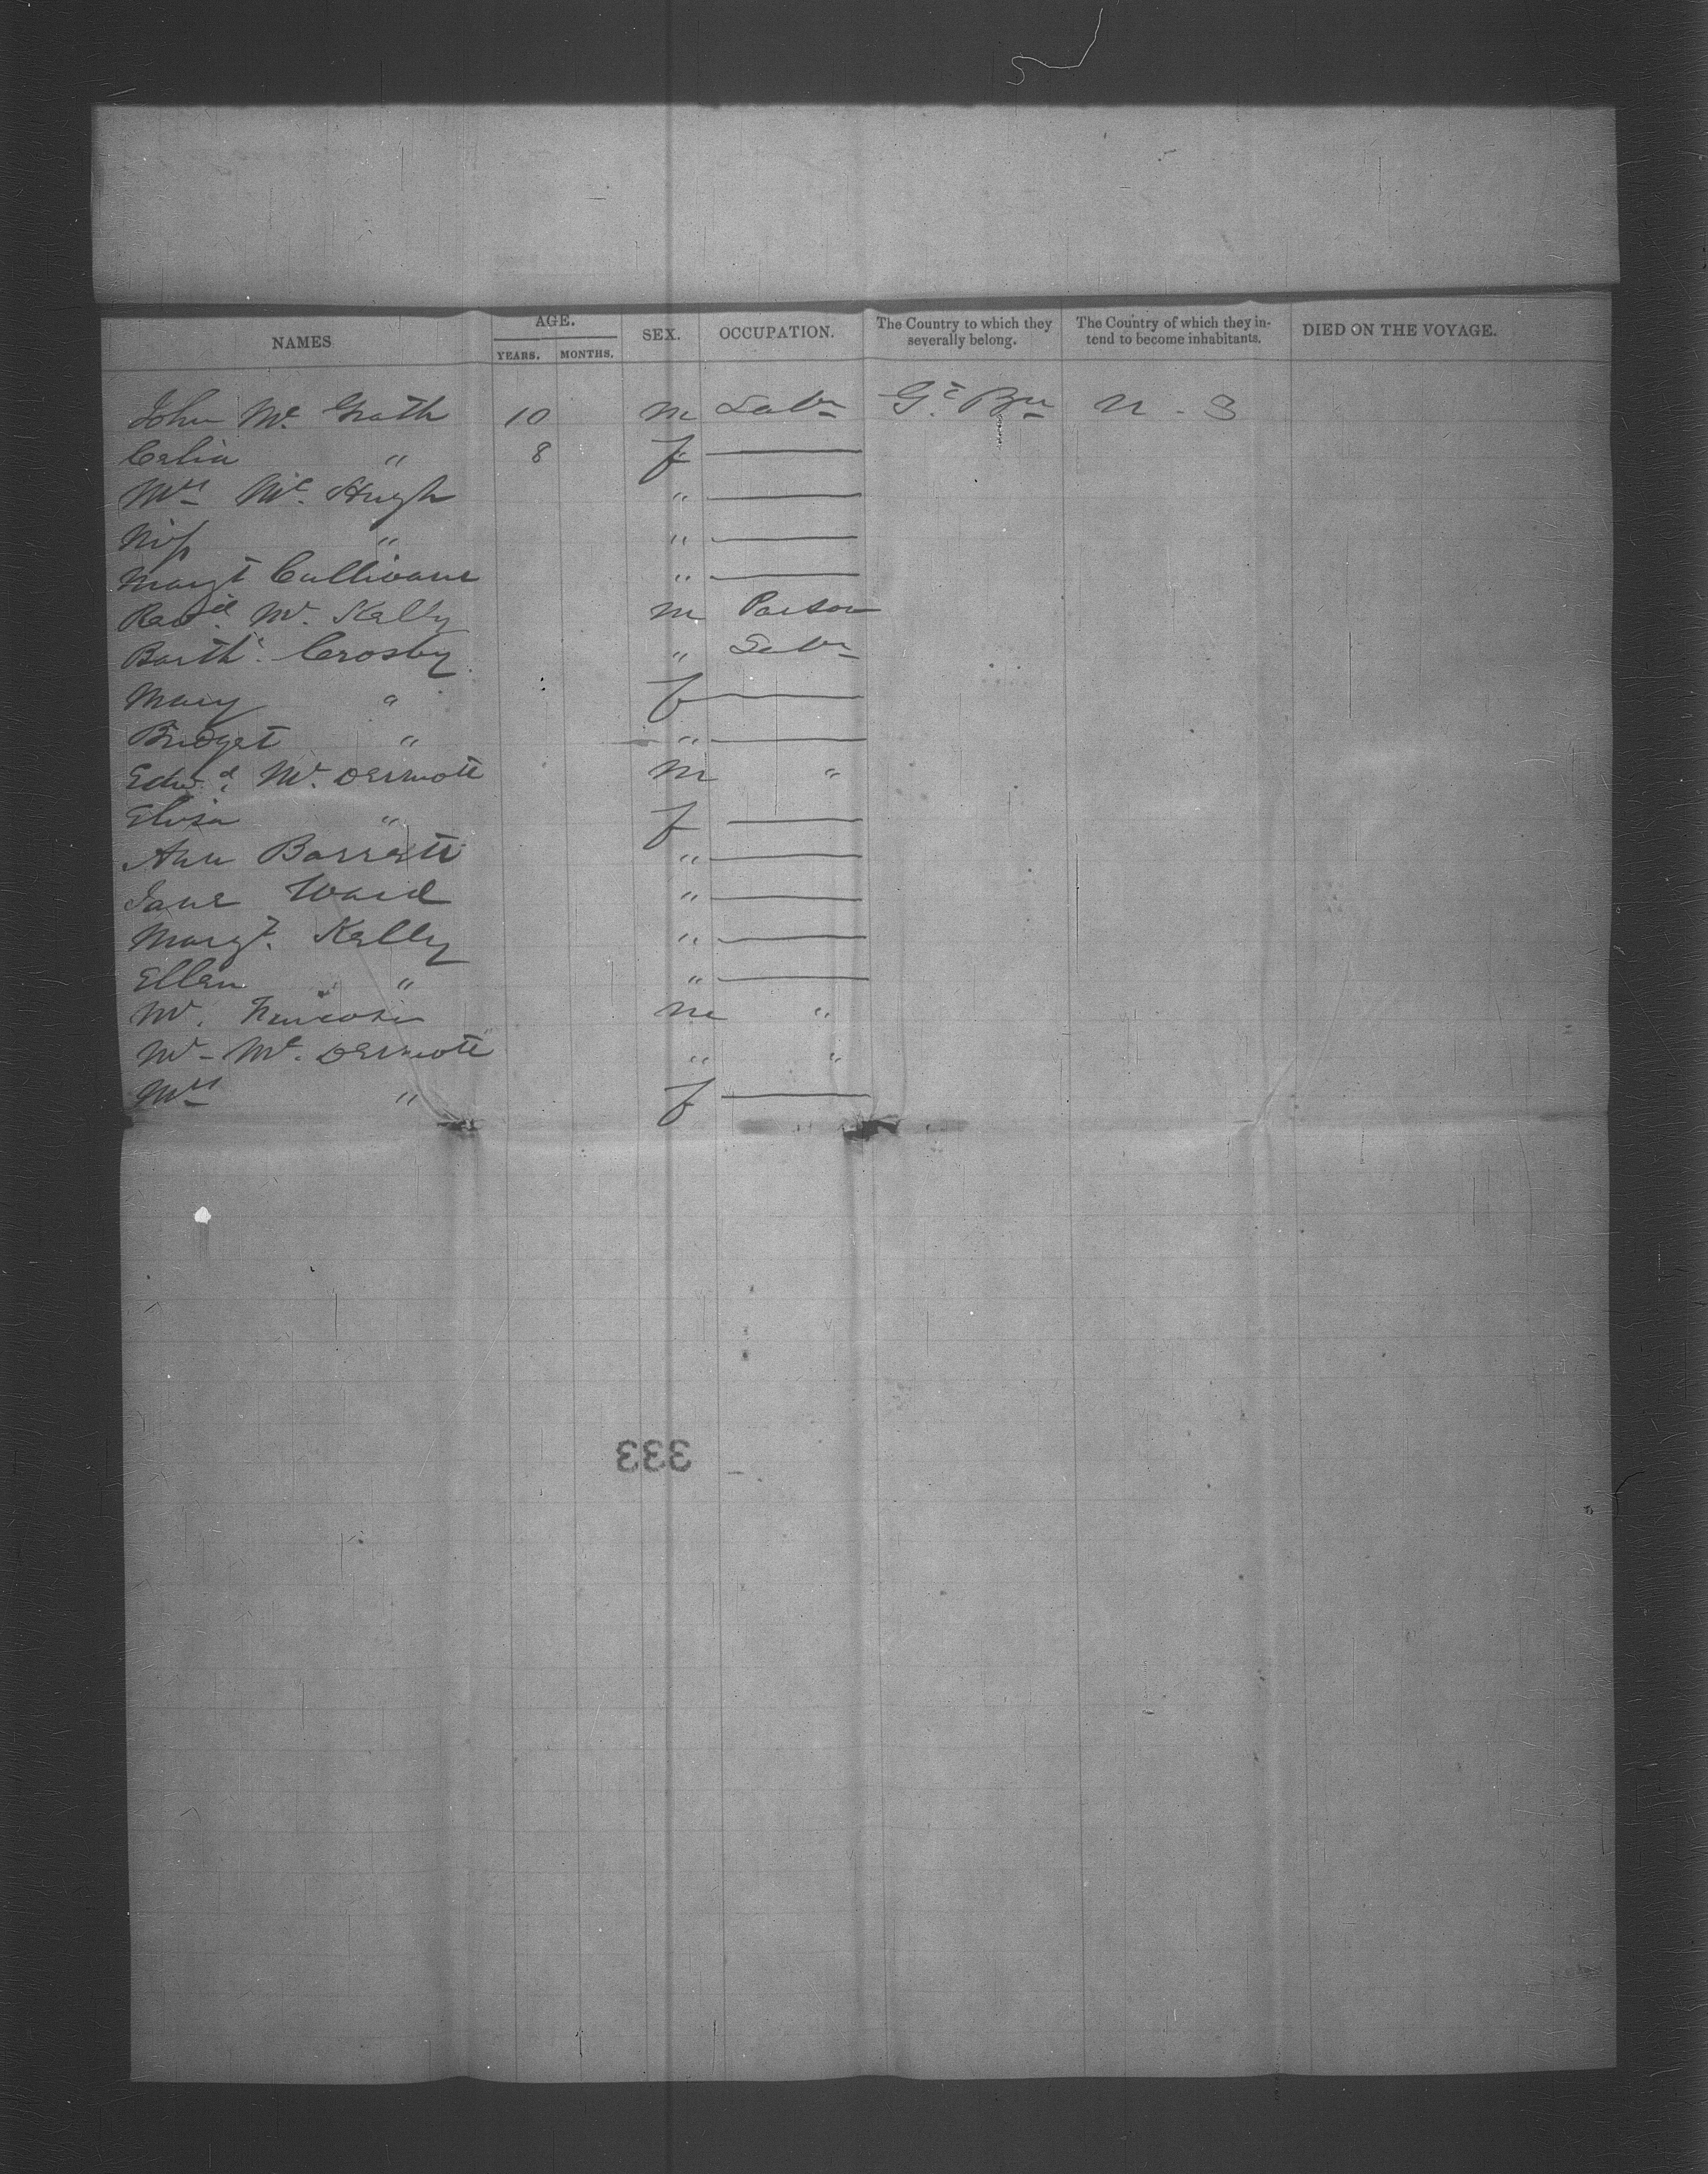 NAMES AGE. SEX. OCCUPATION. The Country to which they severally belong. The Country of which they in-tend to become inhabitants. DIED ON THE VOYAGE.
YEARS. MONTHS.
John Mc Grath 10 m Labr Gt Bn U - S
Celia " 8 f
Mrs Mc Hugh "
Miss " "
Margt Cullivane "
Revd. Mr. Kelly m Pastor
Barth. Crosby " Labr
Mary " f
Bridget " "
Edwd. Mc. Dermott m "
Eliza " f
Ann Barrett "
Jane Ward "
Margt. Kelly "
Ellen " "
Mr. m "
Mr - Mc. Dermott " "
Mrs " f
333